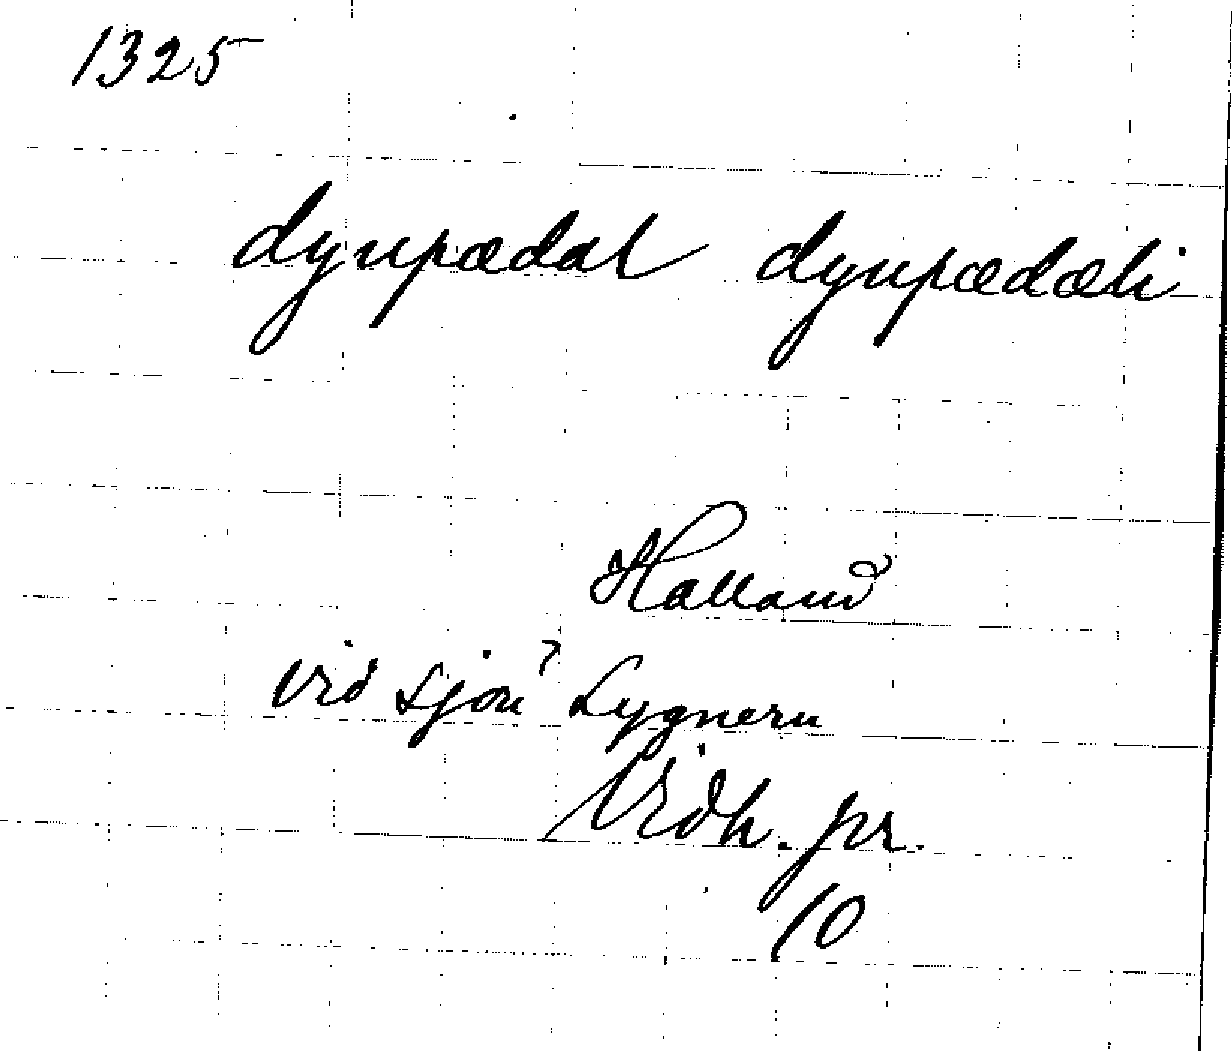 1325
dynpædat dynpædæti
Halland
vid sjön? Lygnern
Vidh. pr.
10